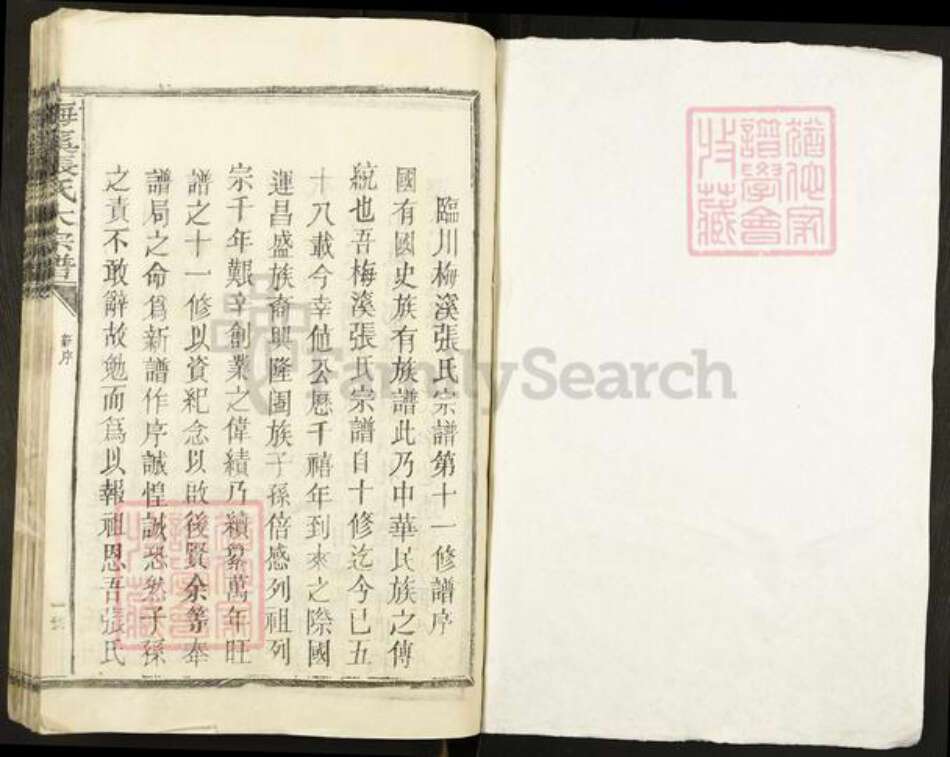 臨川梅溪張氏宗譜第十一修譜序
國有國史族有族譜此乃中華民族之傳
統也吾梅溪張氏宗譜自十修迄今已五
十八載今幸値公曆千禧年到來之際國
運昌盛族裔興隆闔族子孫倍感列祖列
宗千年艱辛創業之偉績乃續綿萬年旺
譜之十一修以資紀念以啟後賢余等奉
譜局之命爲新譜作序誠惶誠恐然子孫
之責不敢辭故勉而爲以報祖恩吾張氏
梅溪張氏大宗譜
新序
FamilySearch
猶他家
譜學會
收藏
猶他家
譜學會
收藏